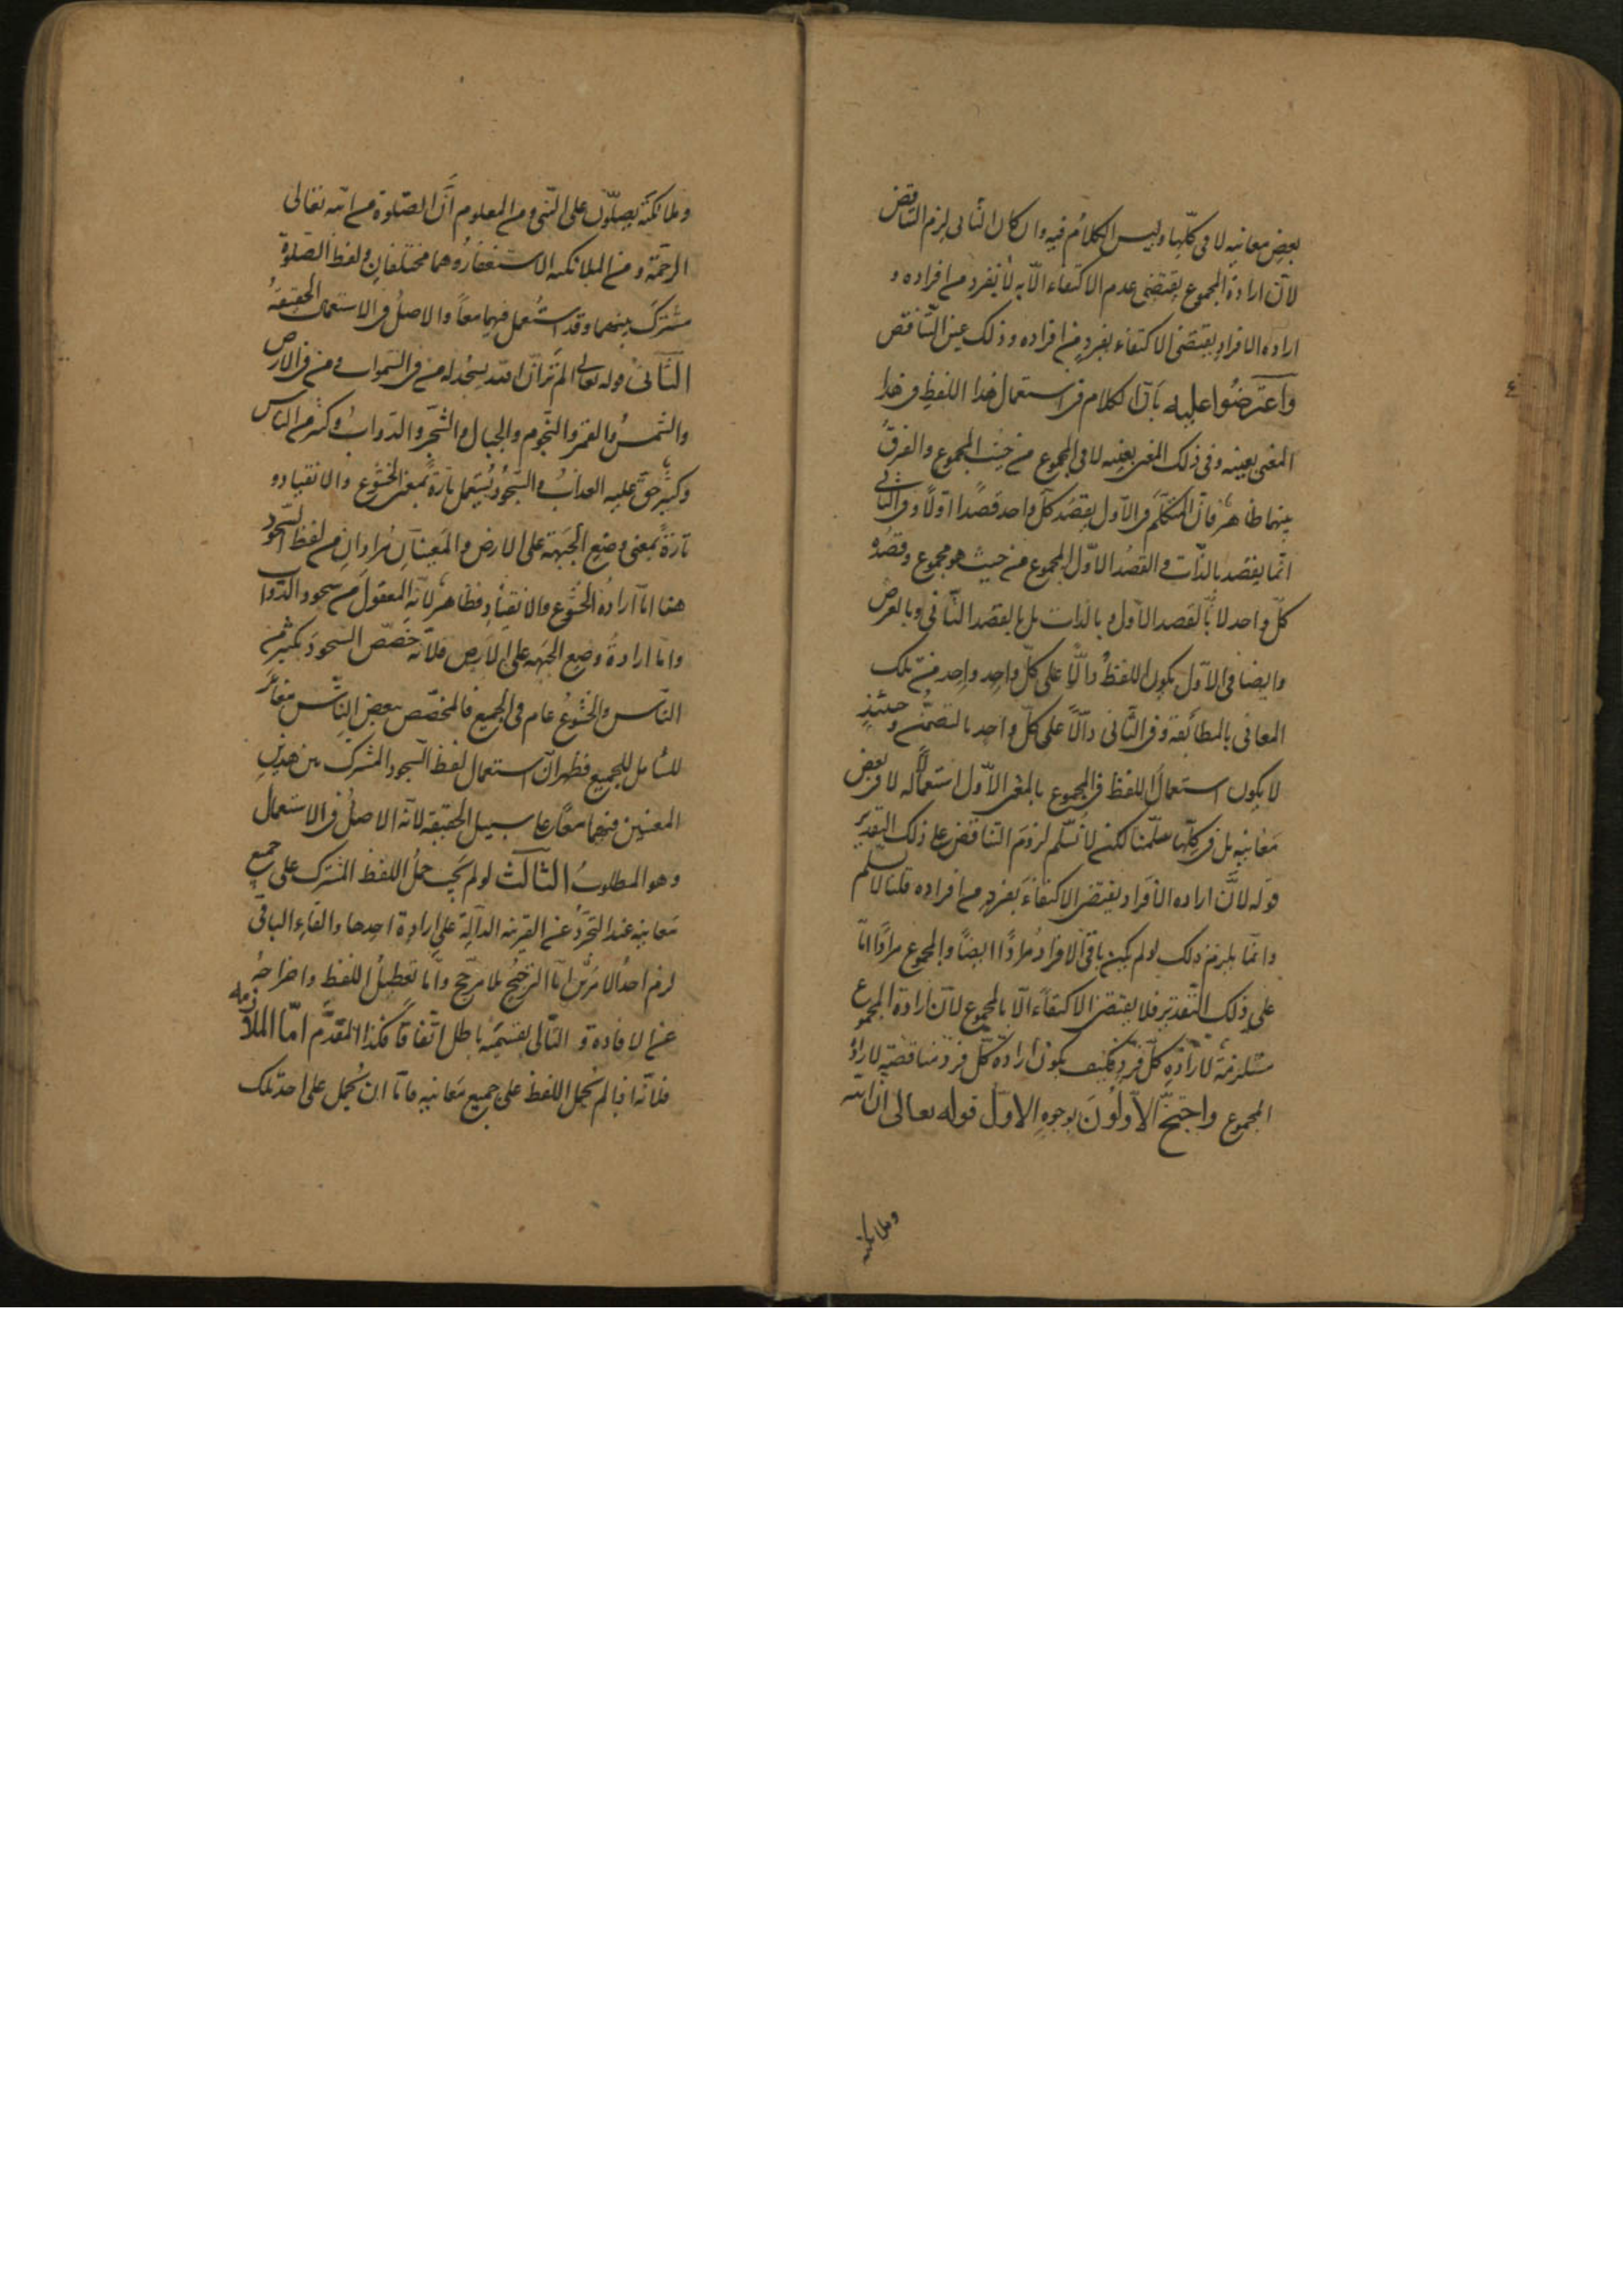 بعض معانيه لا في كلّها وليس الكلام فيه وان كان الثاني لزم التناقض
لانّ ارادة المجموع يقتضي عدم الاكتفاء الّا به لا بفرد من افراده و
اراده الافراد يقتضي الاكتفاء بفرد من افراده وذلك عين التناقض
واعترضوا عليه بانّ الكلام في استعمال هذا اللفظ في هذا
المعنى بعينه وفي ذلك المعنى بعينه لا في المجموع من حيث المجموع والفرق
بينهما ظاهر فانّ المتكلّم في الاوّل يقصد كلّ واحد قصدا اوّلا وفي الثاني
انّما يقصد بالذّات والقصد الاوّل المجموع من حيث هو مجموع وقصده
كلّ واحد لا بالقصد الاوّل وبالذات بل بالقصد الثاني وبالعرض
وايضا في الاوّل يكون اللفظ دالّا على كلّ واحد واحد من تلك
المعاني بالمطابقة وفي الثاني دالّا على كلّ واحد بالتضمّن وحينئذ
لا يكون استعمال اللفظ في المجموع بالمعنى الاوّل استعمالا له في بعض
معانيه بل في كلّها سلّمنا لكن لا نسلّم لزوم التناقض على ذلك التقدير
قوله لانّ اراده الافراد يقتضي الاكتفاء بفرد من افراده قلنا لا نسلم
وانّما يلزم ذلك لو لم يكن باقي الافراد مرادا ايضا والمجموع مرادا امّا
على ذلك التقدير فلا يقتضي الاكتفاء الّا بالمجموع لانّ ارادة المجموع
مستلزمة لارادة كلّ فرد فكيف يكون ارادة كلّ فرد مناقضة لارادة
المجموع واحتجّ الاوّلون بوجوه الاوّل قوله تعالى انّ الله
وملائكته
وملائكته يصلّون على النبي ومن المعلوم انّ الصلوة من الله تعالى
الرحمة ومن الملائكه الاستغفار وهما مختلفان ولفظ الصلوة
مشترك بينهما وقد استعمل فيهما معا والاصل في الاستعمال الحقيقة
الثاني قوله تعالى الم تر انّ الله يسجد له من في السموات ومن في الارض
والشمس والقمر والنجوم والجبال والشجر والدواب وكثير من الناس
وكثير حق عليه العذاب والسجود يستعمل تارة بمعنى الخشوع والانقياد و
تارة بمعنى وضع الجبهة على الارض والمعنيان مرادان من لفظ السجود
هنا امّا ارادة الخشوع والانقياد فظاهر لانّه المعقول من سجود الدواب
وامّا ارادة وضع الجبهه على الارض فلانّه خصّص السجود بكثير من
الناس والخشوع عام في الجميع فالمخصّص ببعض الناس مغاير
للشامل للجميع فظهر انّ استعمال لفظ السجود المشترك بين هذين
المعنيين فيهما معا على سبيل الحقيقه لانه الاصل في الاستعمال
وهو المطلوب الثالث لو لم يجب حمل اللفظ المشترك على جميع
معانيه عند التجرّد عن القرينه الدالّة على ارادة احدها والغاء الباقي
لزم احد الامرين امّا الترجيح بلا مرجّح وامّا تعطيل اللفظ واخراجه
عن الافادة و التالي بقسميه باطل اتّفاقا فكذا المقدّم امّا الملازمه
فلانّه اذا لم يحمل اللفظ على جميع معانيه فامّا ان يحمل على احد تلك